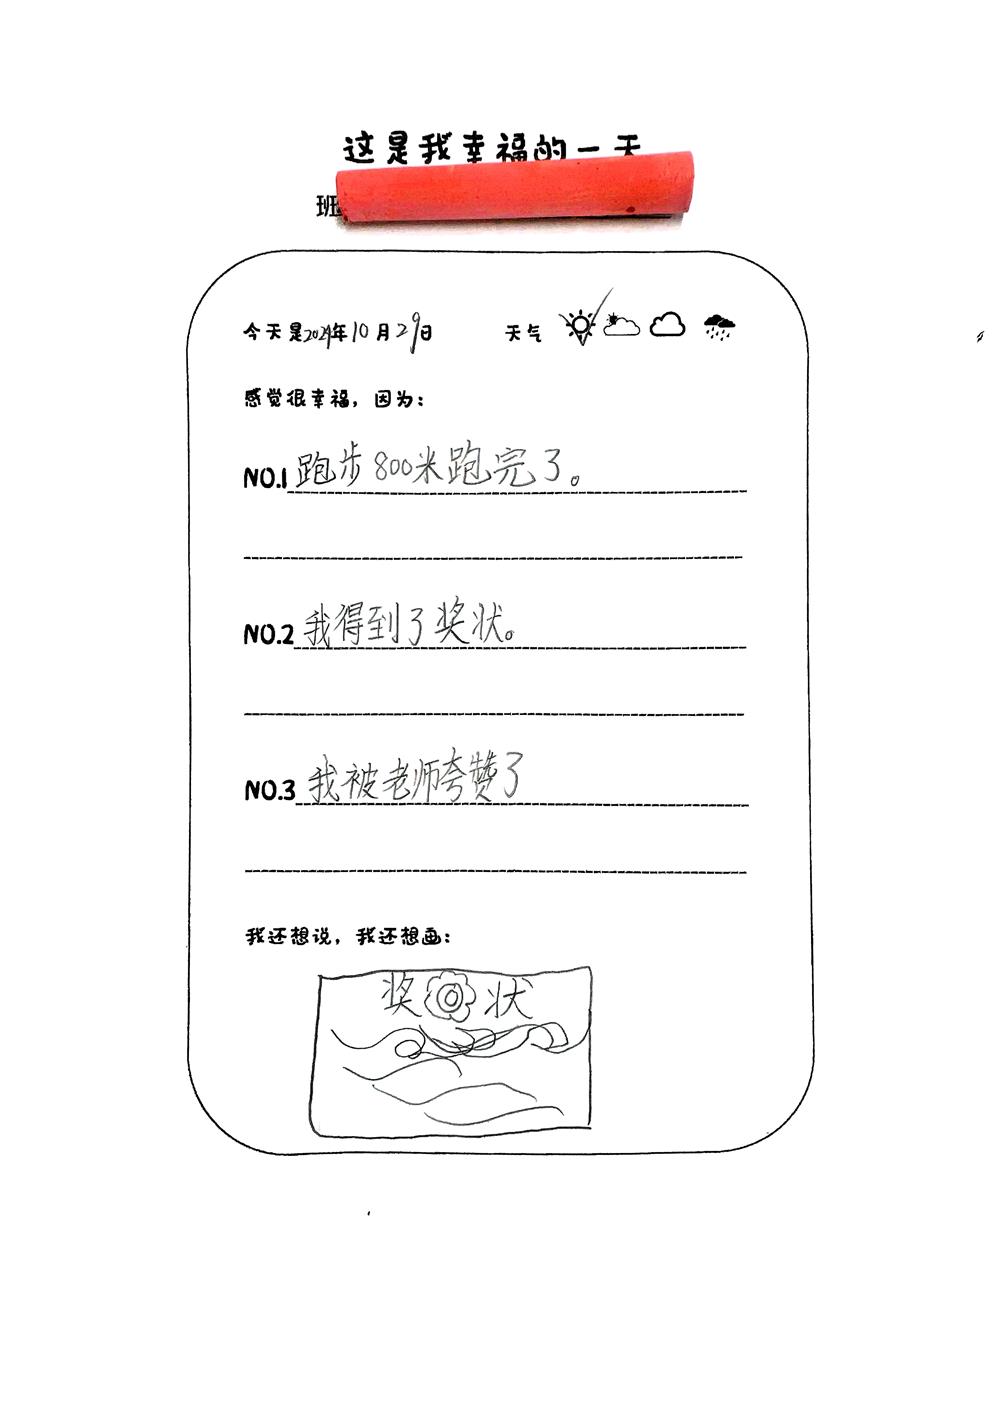 这是我幸福的一天
班
今天是2024年10月29日 天气
感觉很幸福，因为：
NO.1 跑步800米跑完了。
NO.2 我得到了奖状。
NO.3 我被老师夸赞了
我还想说，我还想画：
奖状